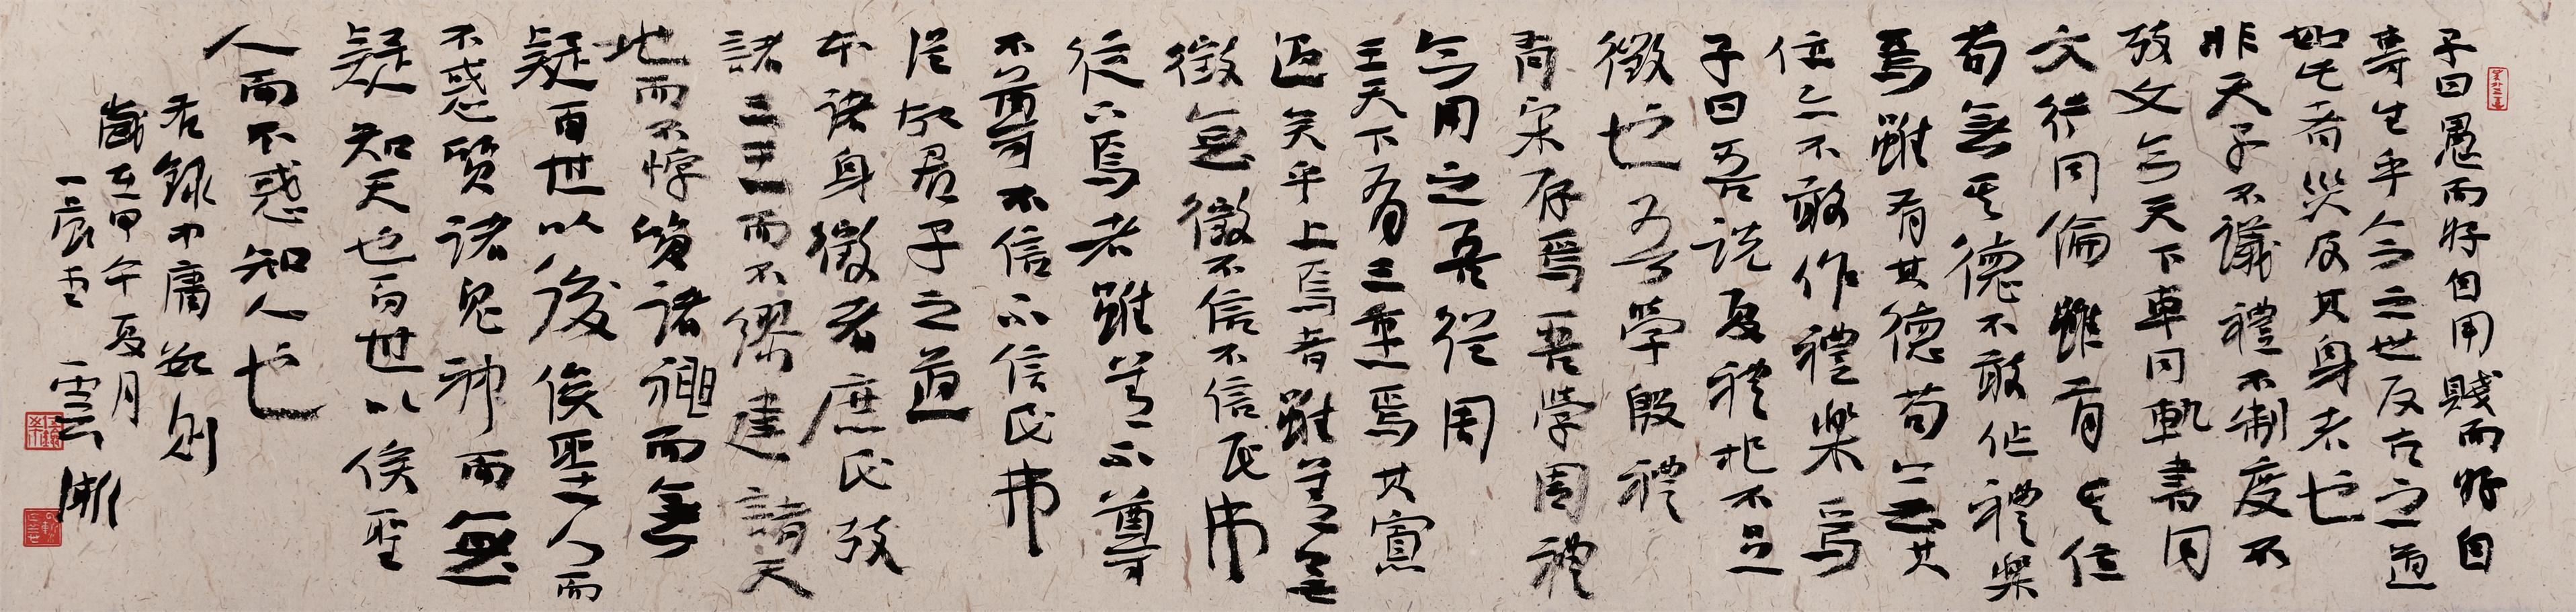 子曰愚而好自用賤而好自
專生乎今之世反古之道
如此者災及其身者也
非天子不議禮不制度不
攷文今天下車同軌書同
文行同倫雖有其位
苟無其德不敢作禮樂
焉雖有其德苟無其
位亦不敢作禮樂焉
子曰吾説夏禮杞不足
徵也吾學殷禮
有宋存焉吾學周禮
今用之吾從周
王天下有三重焉其寡
過矣乎上焉者雖善無
徵無徵不信不信民弗
從下焉者雖善不尊
不尊不信不信民弗
從故君子之道
本諸身徵諸庶民攷
諸三王而不繆建諸天
地而不悖質諸而無
疑百世以後俟聖人而
不惑質諸鬼神而無
疑知天也百世以俟聖
人而不惑知人也
右錄中庸數則
歲在甲午夏月